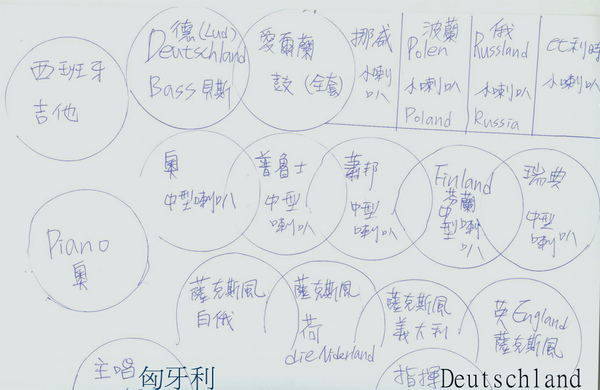 西班牙
吉他
德(Lud)
Deutschland
Bass 貝斯
愛爾蘭
鼓(全套)
挪威
小喇
叭
波蘭
Polen
小喇叭
Poland
俄
Russland
小喇叭
Russia
比利時
小喇叭
Piano
奧
奧
中型喇叭
普魯士
中型
喇叭
蕭邦
中型
喇叭
Finland
芬蘭
中型喇叭
瑞典
中型
喇叭
薩克斯風
白俄
薩克斯風
荷
die Niderland
薩克斯風
義大利
英 England
薩克斯風
主唱
匈牙利
指揮
Deutschland